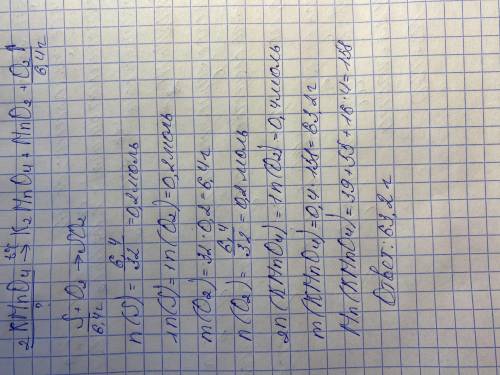 2KMnO4 t°C→ K2MnO4 + MnO2 + O2↑
6,4г
S + O2 → SO2
6,4г
n(S) = 6,4/32 = 0,2 моль
1n(S) = 1n(O2) = 0,2 моль
m(O2) = 32 · 0,2 = 6,4 г
n(O2) = 6,4/32 = 0,2 моль
2n(KMnO4) = 1n(O2) = 0,4 моль
m(KMnO4) = 0,4 · 158 = 63,2 г
Mr(KMnO4) = 39 + 55 + 16 · 4 = 158
Ответ: 63,2 г